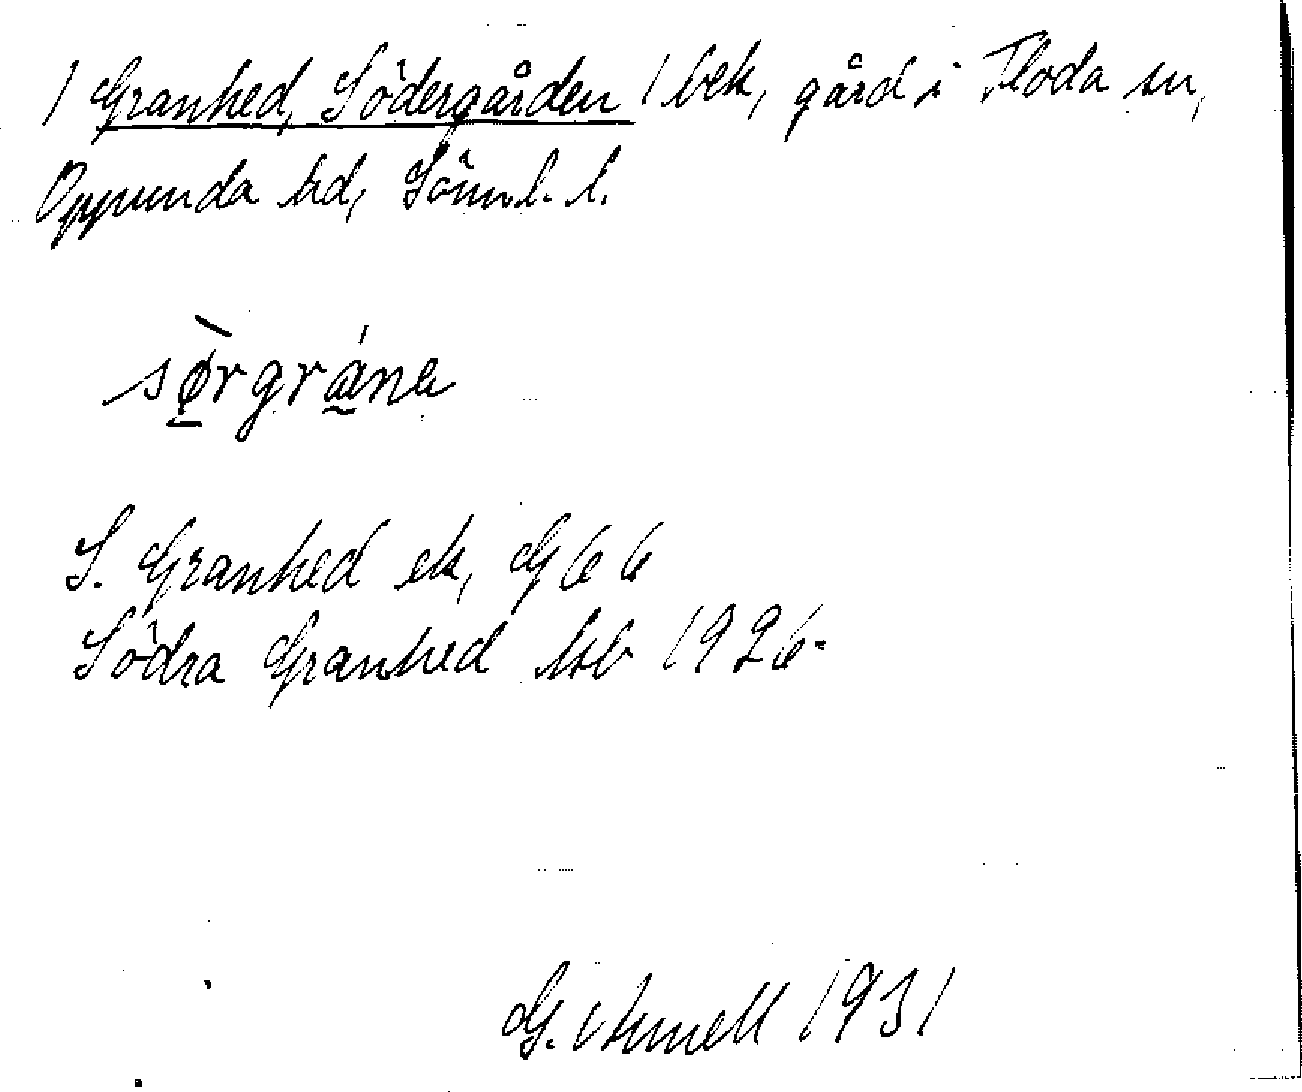 / Granhed, Södergården / bek, gård i Floda sn,
Oppunda hd, Söml. l.
sø̀rgrána
S. Granhed ek, G 66
Södra Granhed Jsb 1926.
G. Ahnell 1931